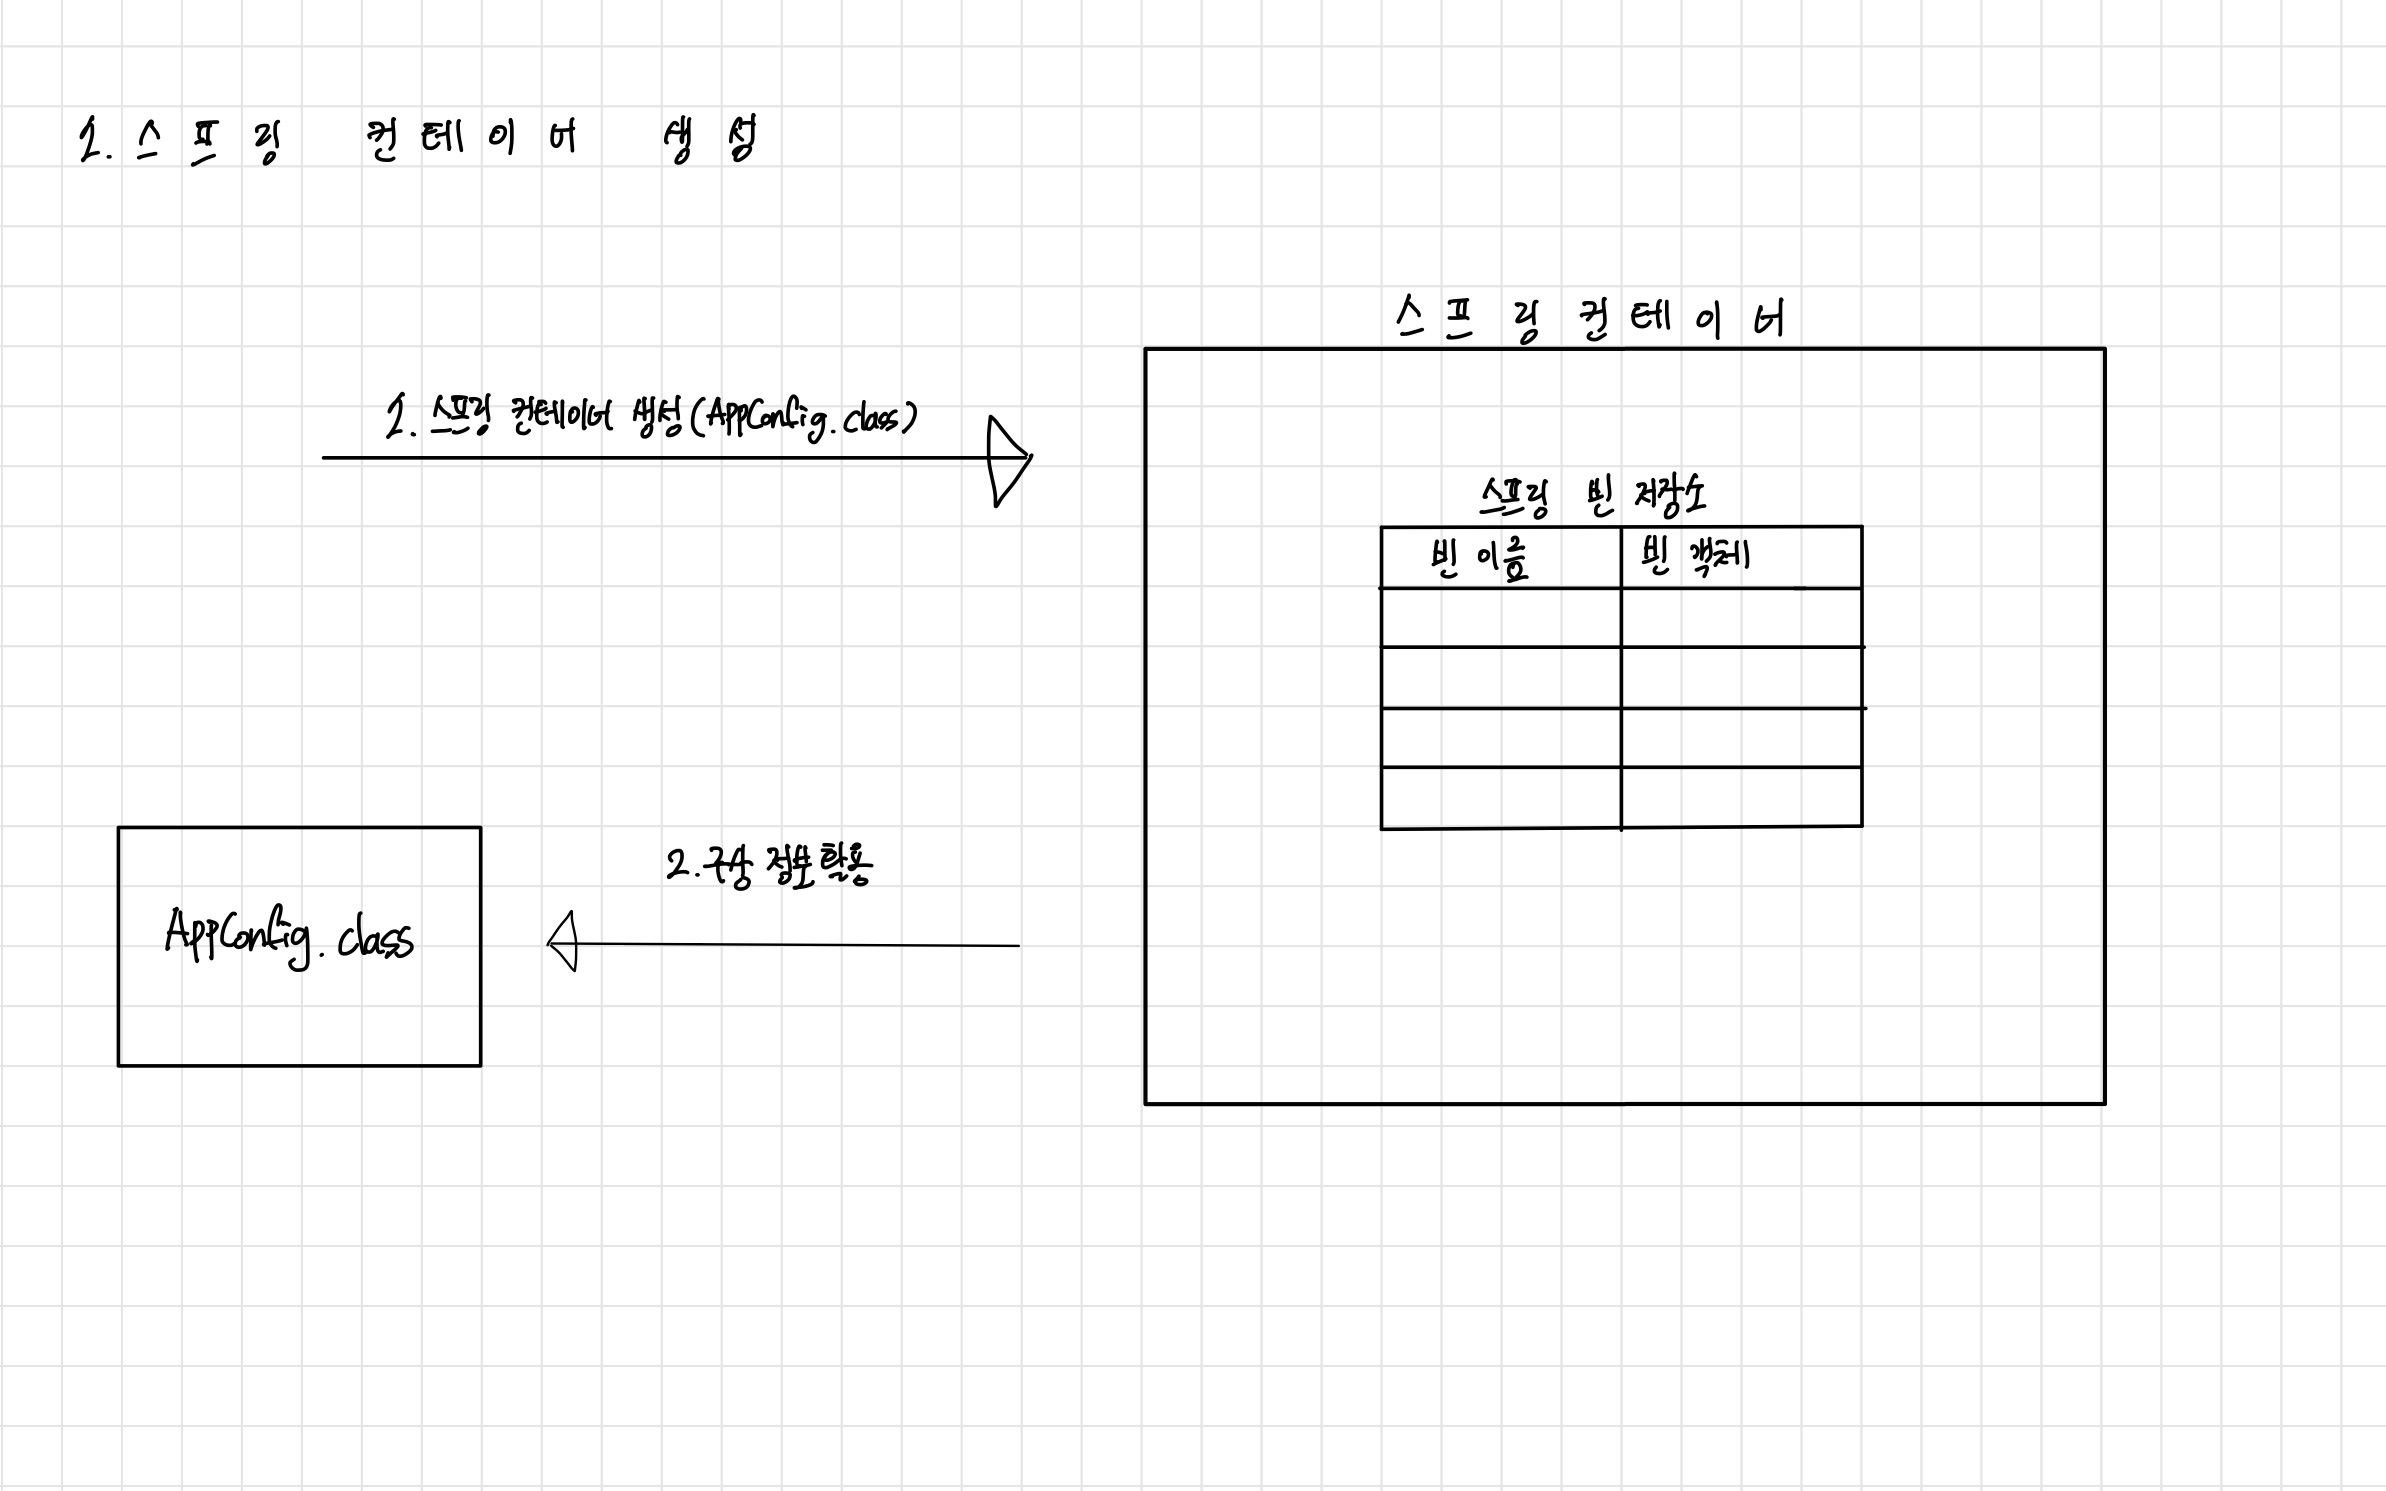 1. 스프링 컨테이너 생성
스프링 컨테이너
1. 스프링 컨테이너 생성(AppConfig.class)
스프링 빈 저장소
빈 이름 빈 객체
2. 구성 정보 활용
AppConfig.class